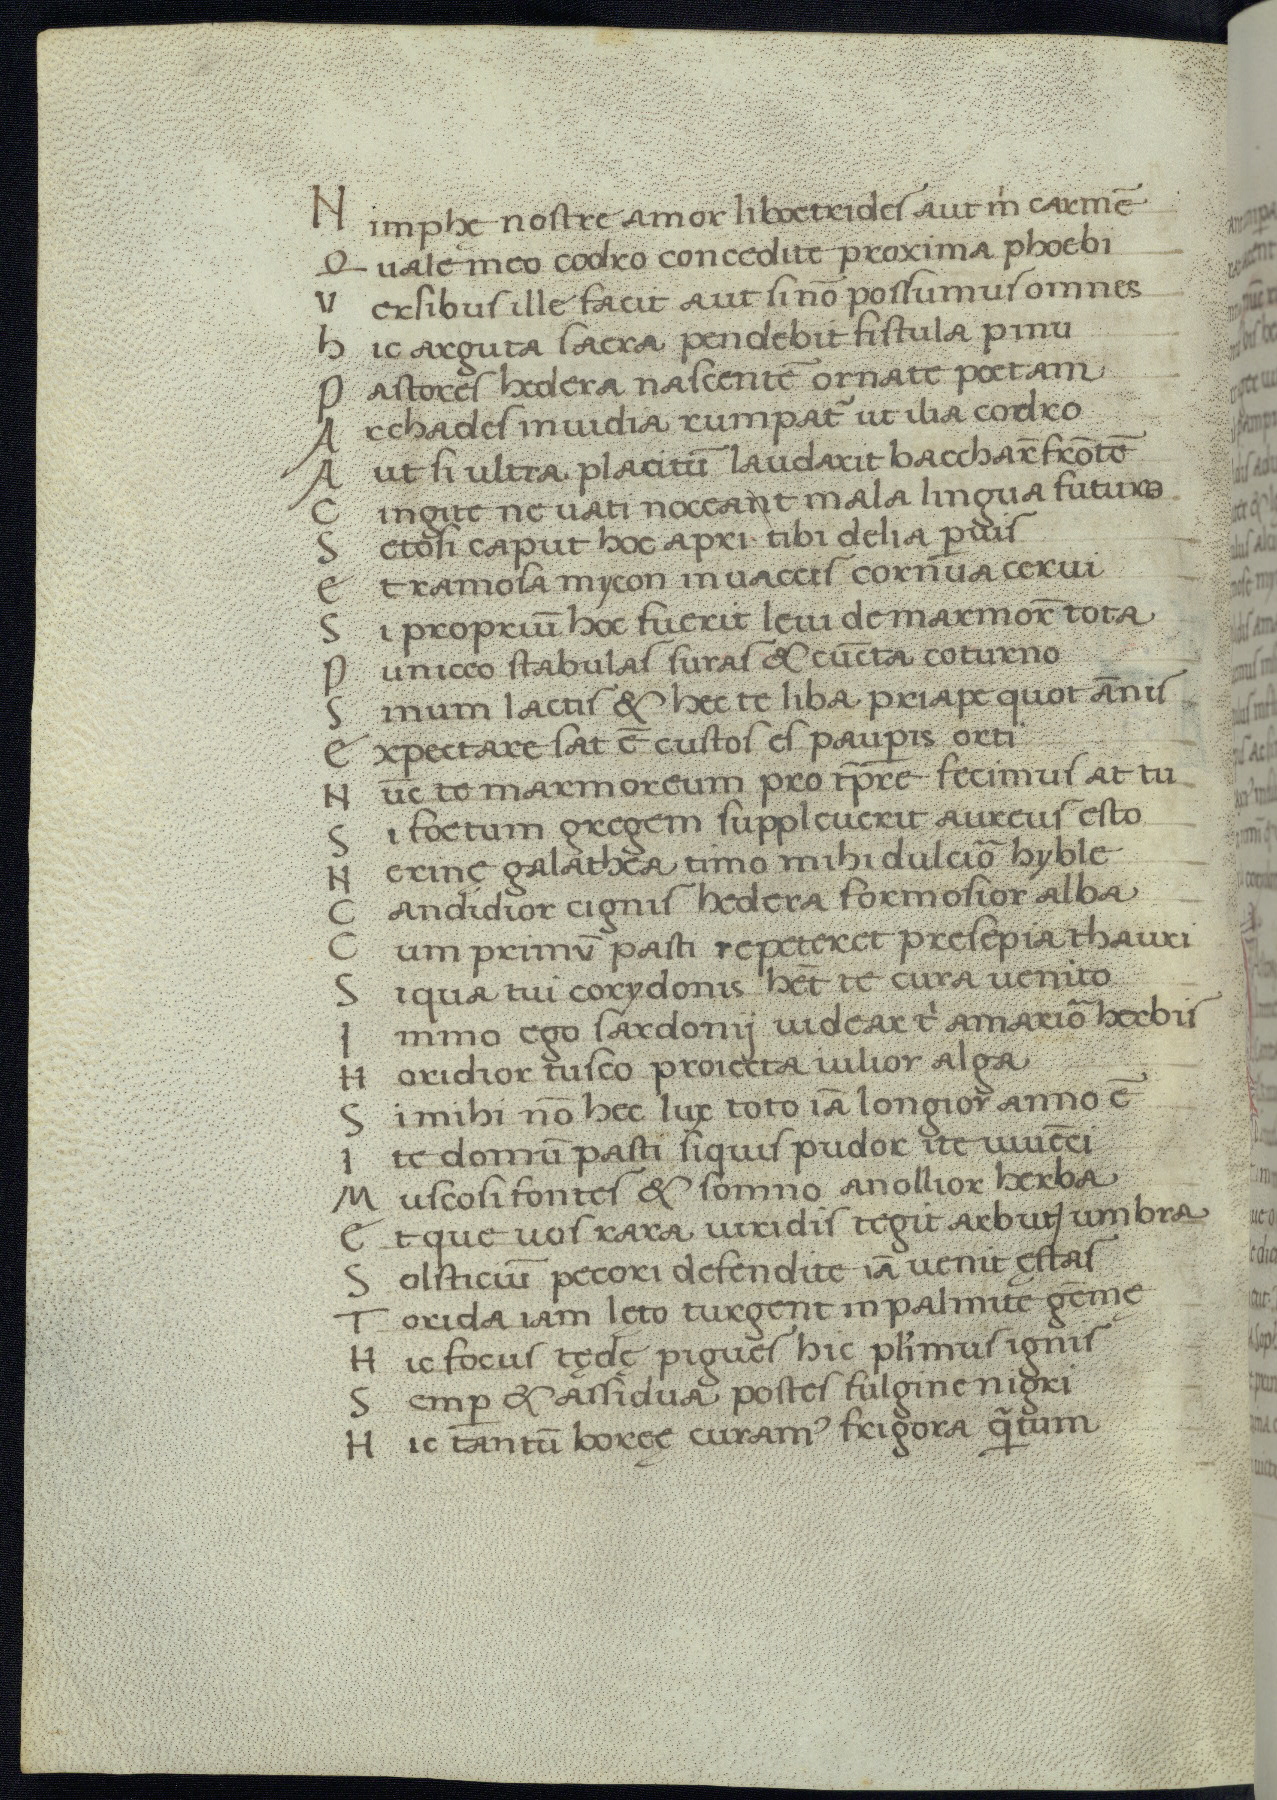 Nimphę nostre amor liboetrides aut m̍ carmē
Quale meo codro concedite proxima phoebi
Versibus ille facit aut si nō possumus omnes
hic arguta sacra pendebit fistula pinu
Pastores hedera nascentē ornate poetam
Archades inuidia rumpat᷑ ut ilia codro
Aut si ultra placitū laudarit bacchar̄ frōtē
Cingite ne uati noceant mala lingua futuro
Setosi caput hoc apri tibi delia puus
Et ramosa mycon inuaccis cornua cerui
Si propriū hoc fuerit leui de marmor̄ tota
Puniceo stabulas suras & cūcta coturno
Sinum lactis & hec te liba priape quot ānis
Expectare sat ē custos es paupis orti
Nūc te marmoreum pro tp̄re fecimus at tu
Si foetum gregem suppleuerit aureus esto
Nerinę galathea timo mihi dulciō hyble
Candidior cignis hedera formosior alba
Cum primū pasti repeteret presepia thauri
Siqua tui corydonis hēt te cura uenito
Immo ego sardonij uidear t̍ amariō herbis
Horidior rusco proiecta iulior alga
Si mihi nō hec lux toto iā longior anno ē
Ite domū pasti siquis pudor ite iuuēci
Muscosi fontes & somno mollior herba
Et que uos rara uiridis tegit arbutꝰ umbra
Solsticiū pecori defendite iā uenit ęstas
Torida iam leto turgent in palmite gēmę
Hic focus tędę pigues hic pl̍imus ignis
Semp & assidua postes fulgine nigri
Hic tantū boreę curamꝰ frigora q̄tum